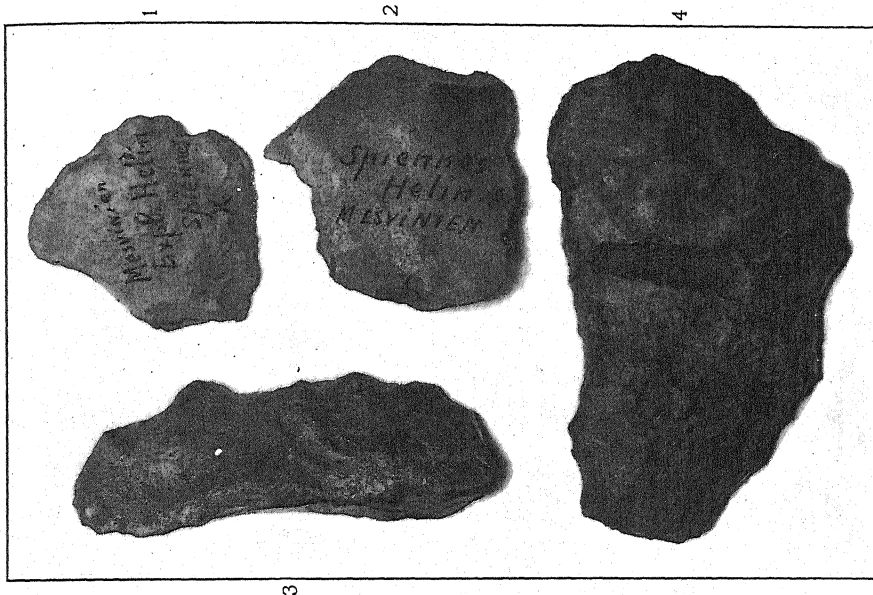 1
2
4
Mesvinien
Expl. Helin
Spiennes
X
Spiennes
Helin
MESVINIEN
3